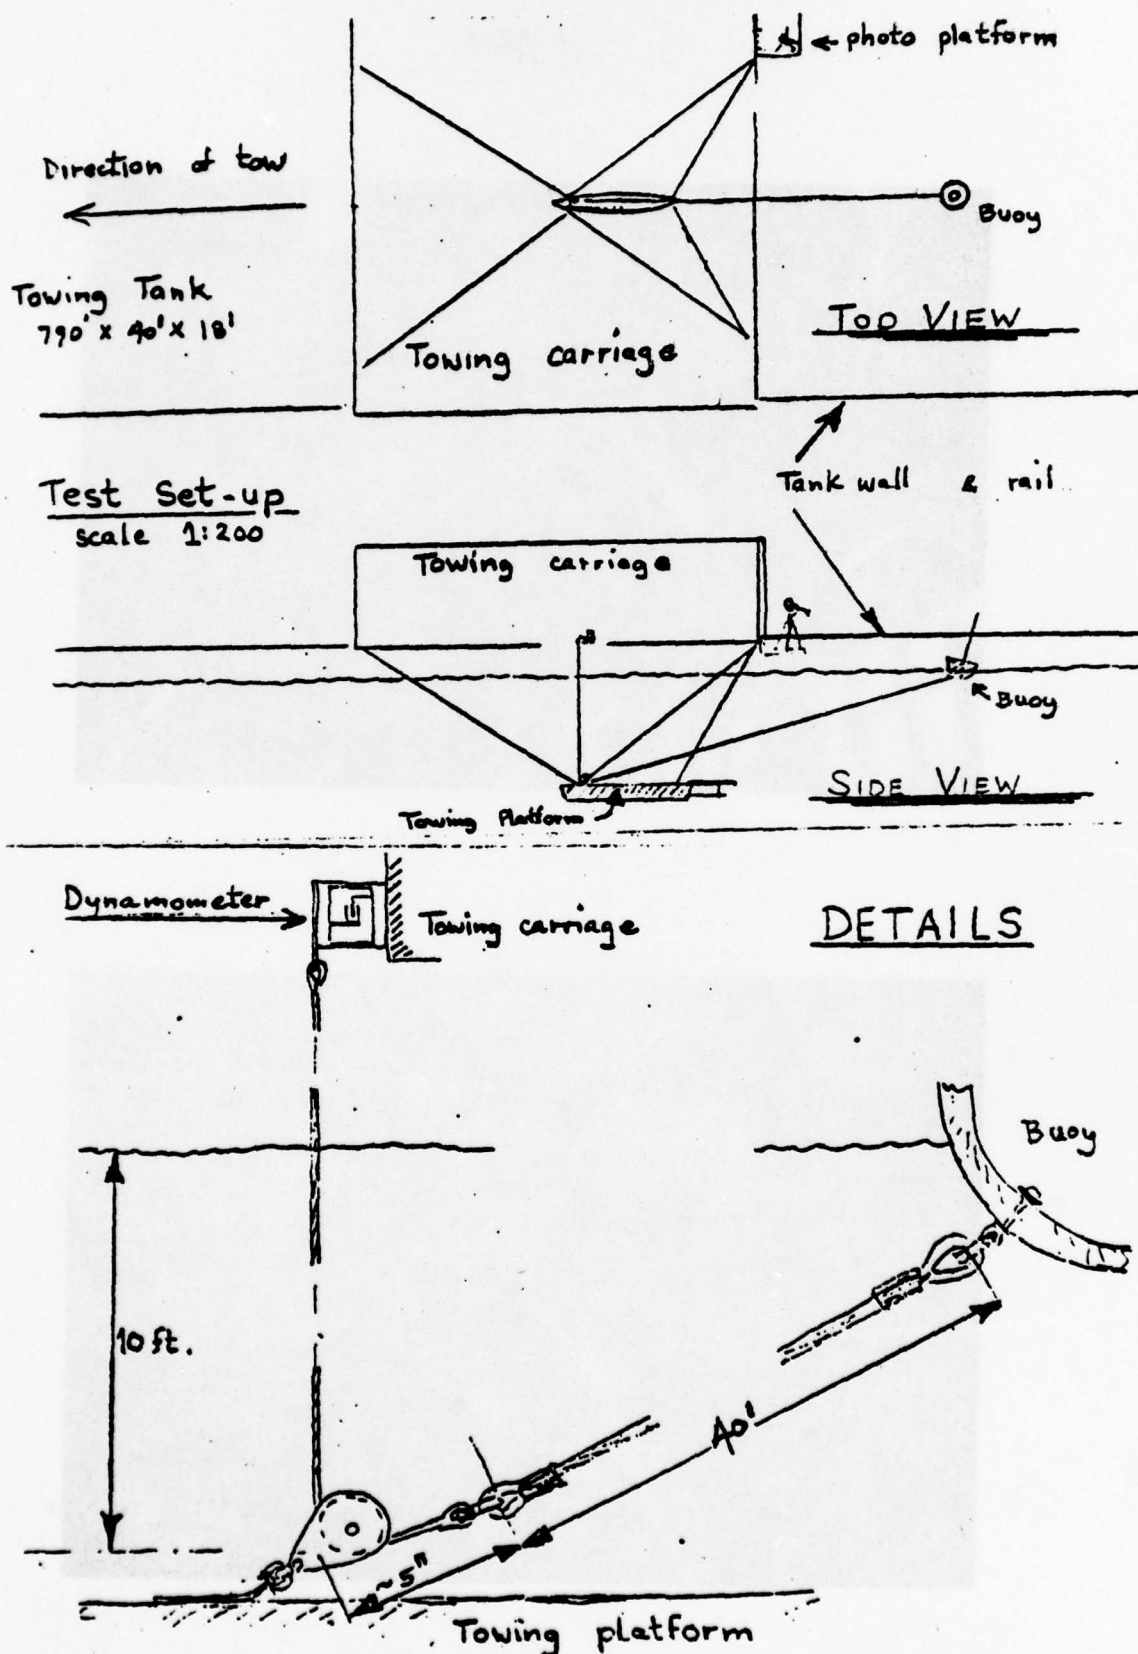 photo platform
Direction of tow
Buoy
Towing Tank
790' x 40' x 18'
TOP VIEW
Towing carriage
Test Set-up
scale 1:200
Tank wall & rail
Towing carriage
Buoy
SIDE VIEW
Towing Platform
Dynamometer
Towing carriage
DETAILS
Buoy
10 ft.
40'
~5"
Towing platform